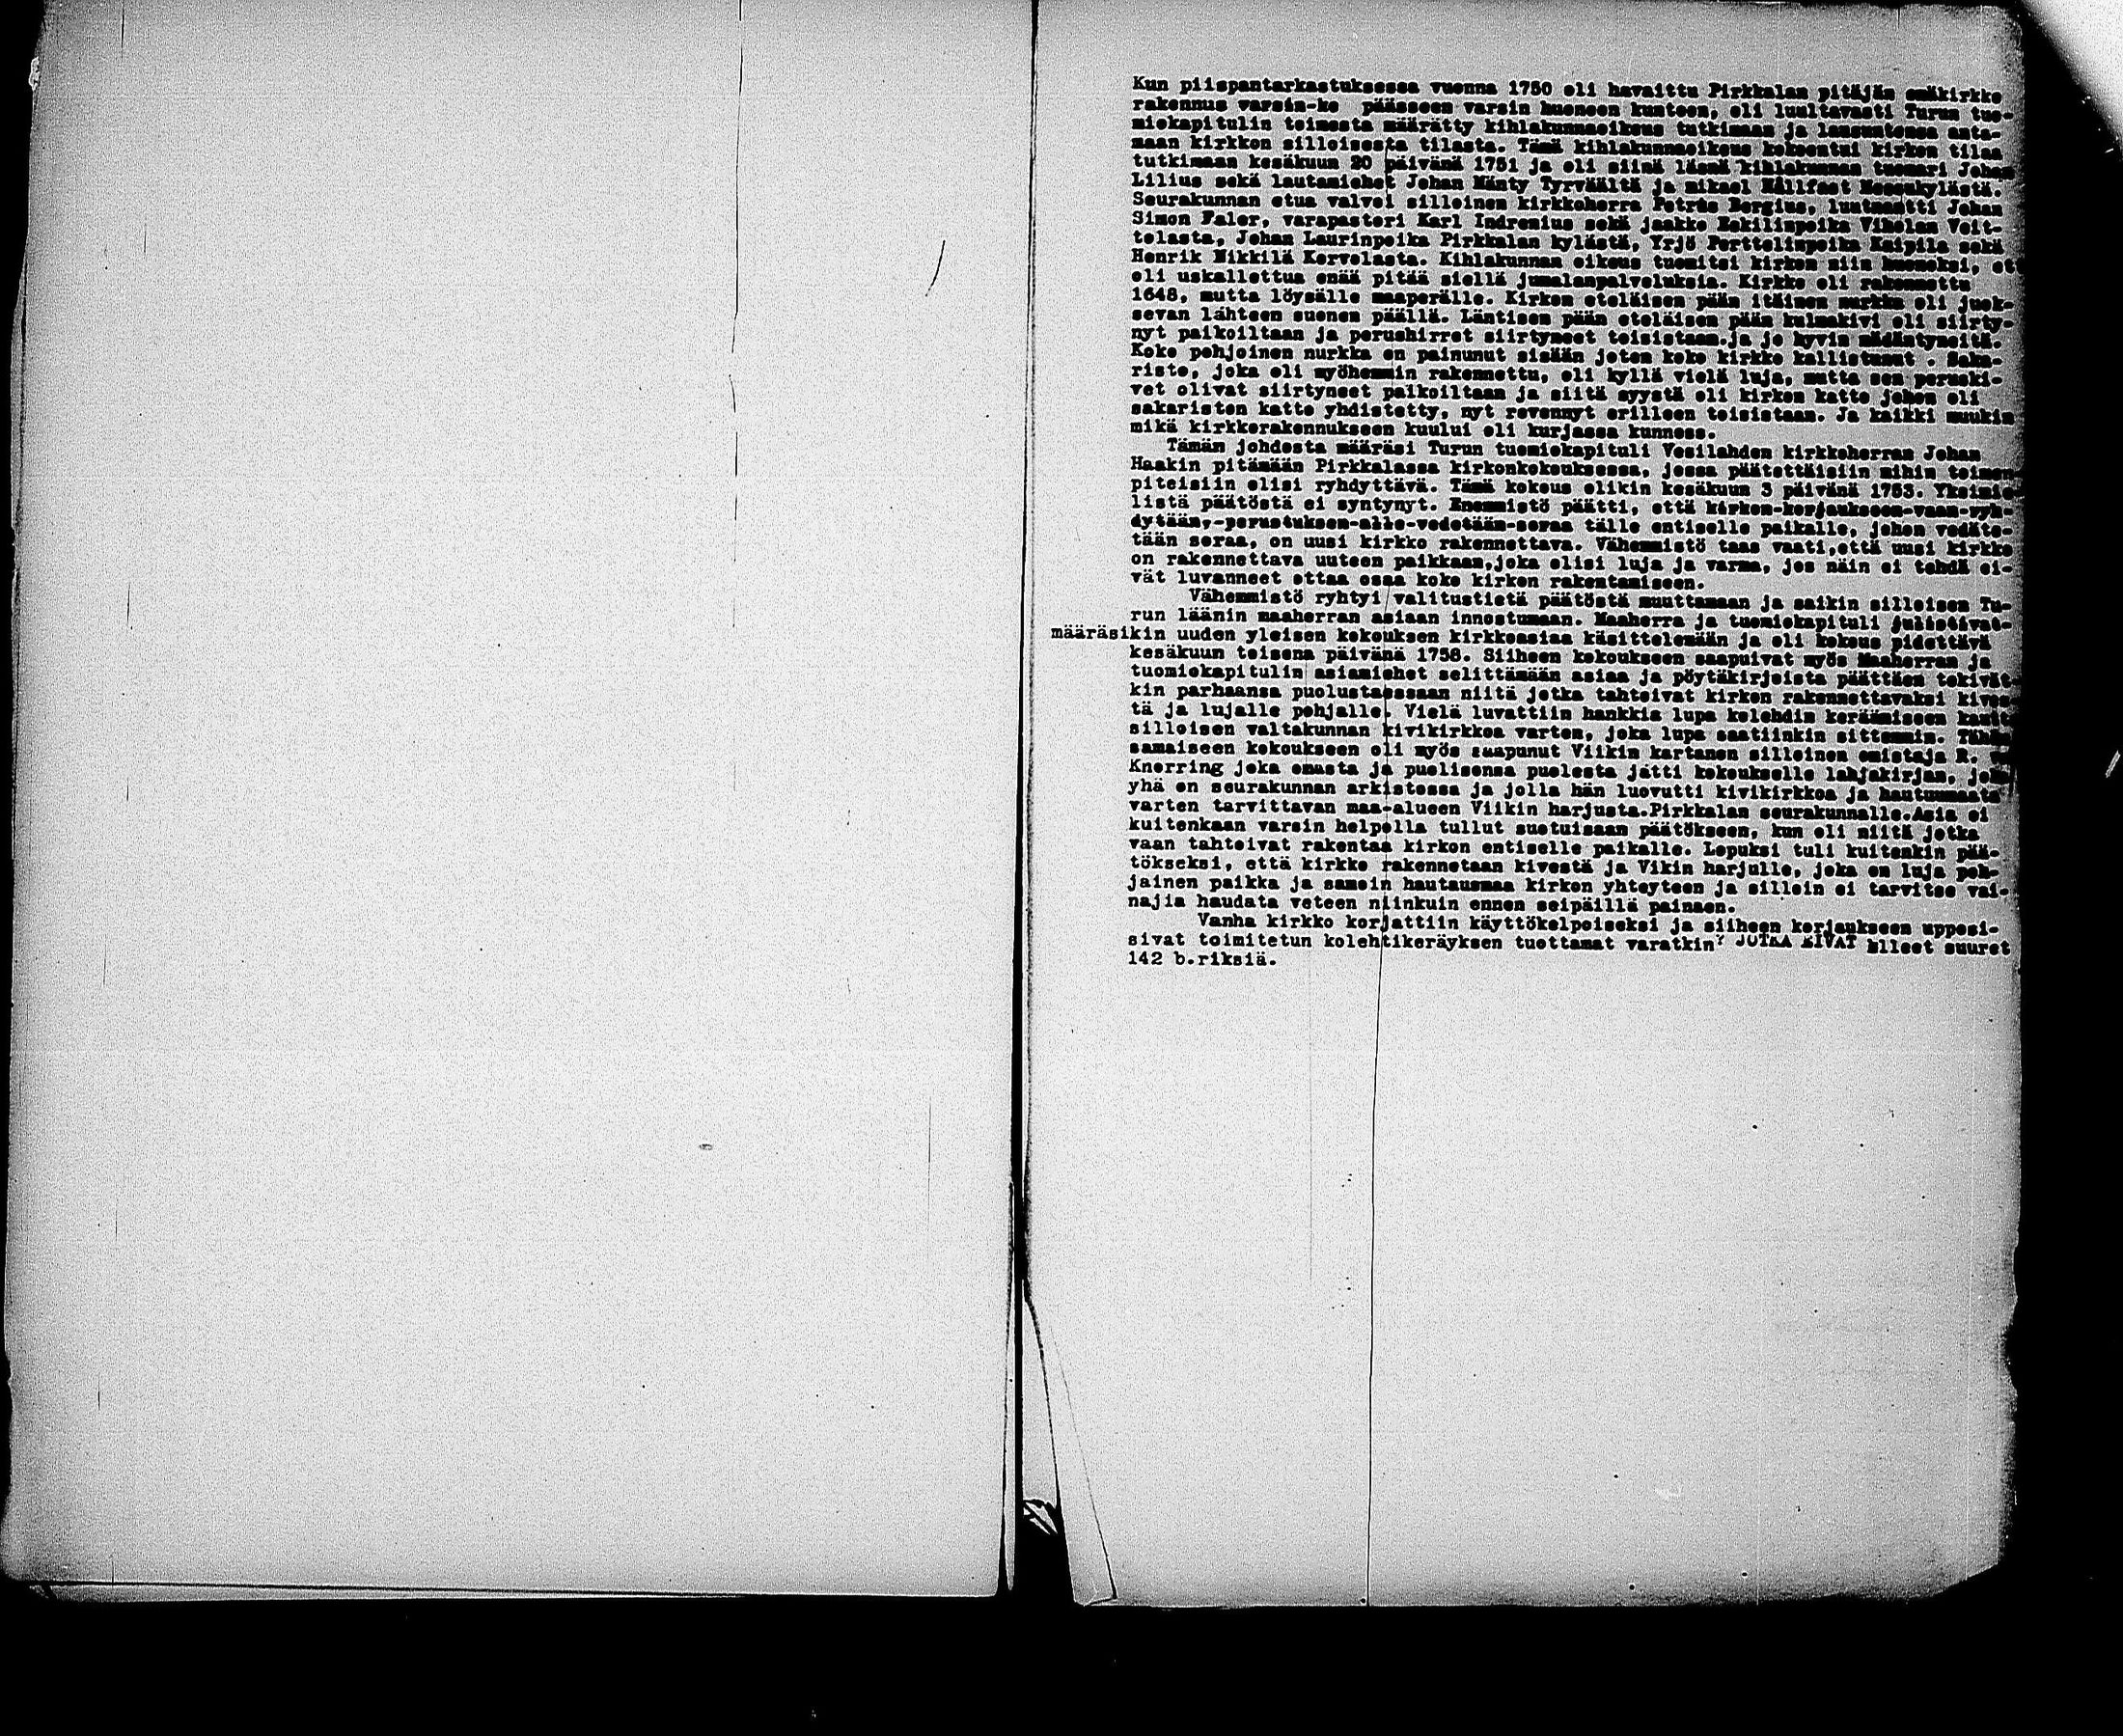 Kun piispantarkastuksessa vuonna 1750 oli havaittu Pirkkalan pitäjän emäkirkko
rakennus varsin-ko päässeen varsin huonoon kuntoon, oli luultavasti Turun tuo-
miokapitulin toimesta määrätty kihlakunnaoikeus tutkimaan ja lausuntonsa anta-
maan kirkkon silloisesta tilasta. Tämä kihlakunnaoikeus kokoontui kirkon tilaa
tutkimaan kesäkuun 20 päivänä 1751 ja oli siinä läsnä kihlakunnan tuomari Johan
Lilius sekä lautamiehet Johan Mänty Tyrväältä ja mikael Hällfast Messukylästä.
Seurakunnan etua valvoi silloinen kirkkoherra Petrus Bergius, luutnantti Johan
Simon Faler, varapastori Karl Indrenius sekä jaakko Eskilinpoika Viholan Voit-
tolasta, Johan Laurinpoika Pirkkalan kylästä, Yrjö Perttelinpoika Knipila sekä
Henrik Mikkilä Korvolasta. Kihlakunnan oikeus tuomitsi kirkon niin huonoksi, et
oli uskallettua enää pitää siellä jumalanpalveluksia. Kirkko oli rakennettu
1648, mutta löysälle maaperälle. Kirkon eteläisen pään itäinen nurkka oli juok-
sevan lähteen suonen päällä. Läntisen pään eteläisen pään kulmakivi oli siirty-
nyt paikoiltaan ja perushirret siirtyneet toisistaan.ja jo hyvin mädäntyneitä.
Koko pohjoinen nurkka on painunut sisään joten koko kirkko kallistunut . Saka-
risto, joka oli myöhemmin rakennettu, oli kyllä vielä luja, mutta sen peruski-
vet olivat siirtyneet paikoiltaan ja siitä syystä oli kirkon katto johon oli
sakariston katto yhdistetty, nyt revennyt erilleen toisistaan. Ja kaikki muukin
mikä kirkkorakennukseen kuului oli kurjassa kunnoss.
Tämän johdosta määräsi Turun tuomiokapituli Vesilahden kirkkoherran Johan
Haakin pitämään Pirkkalassa kirkonkokouksessa, jossa päätettäisiin mihin toimen
piteisiin olisi ryhdyttävä. Tämä kokous olikin kesäkuun 3 päivänä 1753. Yksimie-
listä päätöstä ei syntynyt. Enemmistö päätti, että kirkon-korjaukseen-vaan-ryh-
dytään,-perustuksen-alle-vedetään-soraa tälle entiselle paikalle, johon vedäte-
tään soraa, on uusi kirkko rakennettava. Vähemmistö taas vaati,että uusi kirkko
on rakennettava uuteen paikkaan,joka olisi luja ja varma, jos näin ei tehdä ei-
vät luvanneet ottaa osaa koko kirkon rakentamiseen.
Vähemmistö ryhtyi valitustistä päätöstä muuttamaan ja saikin silloisen Tu-
run läänin maaherran asiaan innostumaan. Maaherra ja tuomiokapituli
määräsikin uuden yleisen kokouksen kirkkoasiaa käsittelemään ja oli kokous pidettävä
kesäkuun toisena päivänä 1758. Siiheen kokoukseen saapuivat myös Maaherran ja
tuomiokapitulin asiamiehet selittämään asiaa ja pöytäkirjoista päättäen tekivät
kin parhaansa puolustaessaan niitä jotka tahtoivat kirkon rakennettavaksi kives
tä ja lujalle pohjalle. Vielä luvattiin hankkia lupa kolehdin keräämiseen kautt
silloisen valtakunnan kivikirkkoa varten, joka lupa saatiinkin sittemmin. Tähän
samaiseen kokoukseen oli myös saapunut Viikin kartanon silloinen omistaja R.
Knorring joka omasta ja puolisonsa puolesta jätti kokoukselle lahjakirjan, joka
yhä on seurakunnan arkistossa ja jolla hän luovutti kivikirkkoa ja hautuumaata
varten tarvittavan maa-alueen Viikin harjusta.Pirkkalan seurakunnalle.Asia ei
kuitenkaan varsin helpolla tullut suotuisaan päätökseen, kun oli niitä jotka
vaan tahtoivat rakentaa kirkon entiselle paikalle. Lopuksi tuli kuitenkin pää-
tökseksi, että kirkko rakennetaan kivestä ja Vikin harjulle, joka on luja poh-
jainen paikka ja samoin hautausmaa kirkon yhteyteen ja silloin ei tarvitse vai-
najia haudata veteen niinkuin ennen seipäillä painaen.
Vanha kirkko korjattiin käyttökelpoiseksi ja siiheen korjaukseen upposi-
sivat toimitetun kolehtikeräyksen tuottamat varatkin? JOTKA EIVAT älleet suuret
142 b.riksiä.